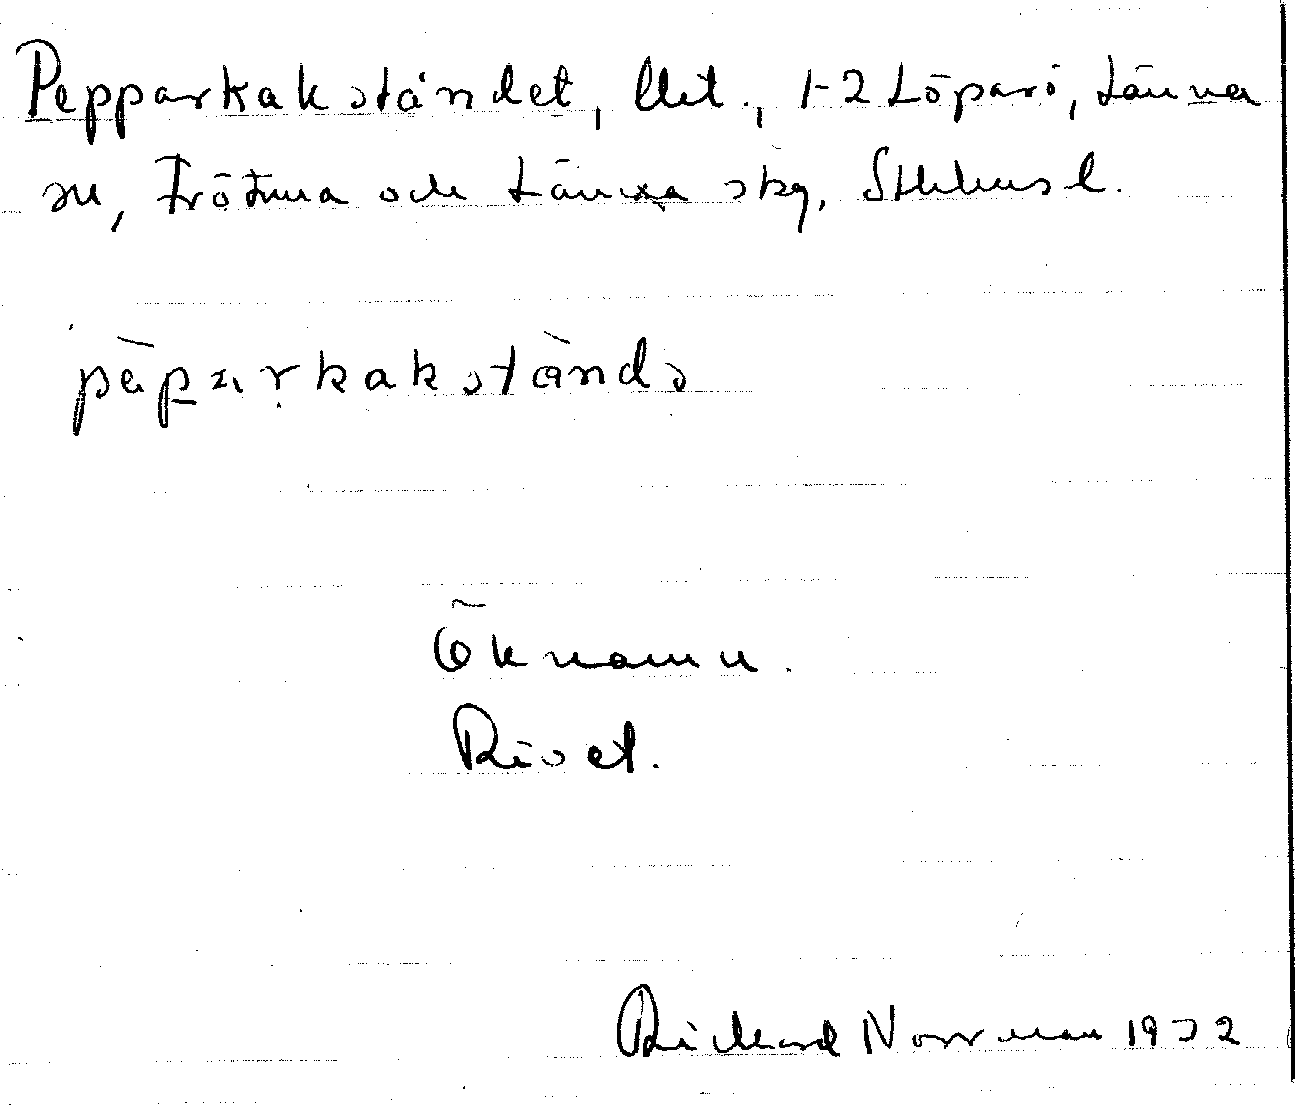 Pepparkakståndet, lht., 1-2 Löparö, Länna
sn, Frötuna och Länna skg, Sthlms l.
päparkakstånds
Öknamn.
Rivet.
Rickard Norrman 1932